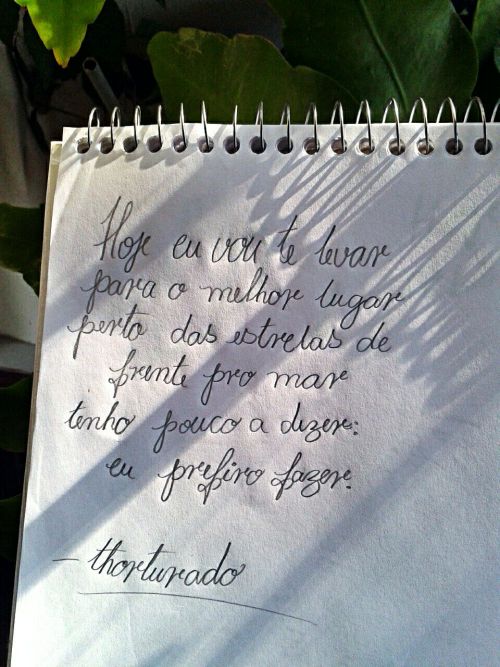 Hoje eu vou te levar
para o melhor lugar
perto das estrelas de
frente pro mar
tenho pouco a dizer:
eu prefiro fazer.
– thorturado